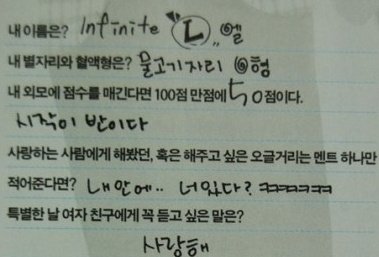 내 이름은? Infinite "L" 엘
내 별자리와 혈액형은? 물고기자리 O형
내 외모에 점수를 매긴다면 100점 만점에 50점이다.
시작이 반이다
사랑하는 사람에게 해봤던, 혹은 해주고 싶은 오글거리는 멘트 하나만
적어준다면? 내 안에.. 너 있다? ㅋㅋㅋㅋㅋㅋ
특별한 날 여자 친구에게 꼭 듣고 싶은 말은?
사랑해